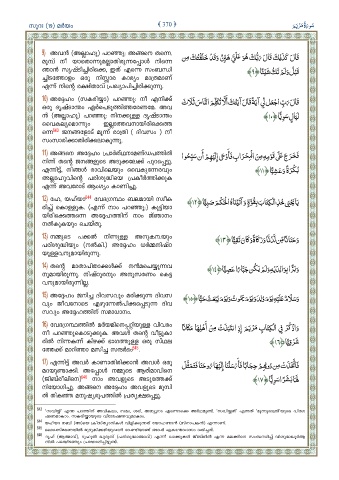 സൂറ (19) മര്‍യം
﴿ 370 ﴾
سُورَةُ مَرْيَم
9) അവന്‍ (അല്ലാഹു) പറഞ്ഞു: അങ്ങനെ തന്നെ.
ഞാന്‍ സൃഷ്ടിച്ചിരിക്കെ, ഇത് എന്നെ സംബന്ധി
ച്ചിടത്തോളം ഒരു നിസ്സാര കാര്യം മാത്രമാണ്
എന്ന് നിന്റെ രക്ഷിതാവ് പ്രഖ്യാപിച്ചിരിക്കുന്നു.
قَالَ كَذَٰلِكَ قَالَ رَبُّكَ هُوَ عَلَيَّ هَيِّنٌ وَقَدْ خَلَقْتُكَ مِن
قَبْلُ وَلَمْ تَكُ شَيْئًا ﴿٩﴾
10) അദ്ദേഹം (സകരിയ്യാ) പറഞ്ഞു: നീ എനിക്ക്
ഒരു ദൃഷ്ടാന്തം ഏര്‍പ്പെടുത്തിത്തരേണമേ. അവ
ന്‍ (അല്ലാഹു) പറഞ്ഞു: നിനക്കുള്ള ദൃഷ്ടാന്തം
വൈകല്യമൊന്നും ഇല്ലാത്തവനായിരിക്കെത്ത
ന്നെ ജനങ്ങളോട് മൂന്ന് രാത്രി (ദിവസം) നീ
സംസാരിക്കാതിരിക്കലാകുന്നു.
قَالَ رَبِّ اجْعَل لِّي آيَةً قَالَ آيَتُكَ أَلَّا تُكَلِّمَ النَّاسَ ثَلَاثَ
لَيَالٍ سَوِيًّا ﴿١٠﴾
11) അങ്ങനെ അദ്ദേഹം പ്രാര്‍ത്ഥനാമണ്ഡപത്തില്‍
നിന്ന് തന്റെ ജനങ്ങളുടെ അടുക്കലേക്ക് പുറപ്പെട്ടു.
എന്നിട്ട്, നിങ്ങള്‍ രാവിലെയും വൈകുന്നേരവും
അല്ലാഹുവിന്റെ പരിശുദ്ധിയെ പ്രകീര്‍ത്തിക്കുക
എന്ന് അവരോട് ആംഗ്യം കാണിച്ചു.
فَخَرَجَ عَلَىٰ قَوْمِهِ مِنَ الْمِحْرَابِ فَأَوْحَىٰ إِلَيْهِمْ أَن سَبِّحُوا
بُكْرَةً وَعَشِيًّا ﴿١١﴾
12) ഹേ, യഹ്‌യാ! വേദഗ്രന്ഥം ബലമായി സ്വീക
രിച്ച് കൊള്ളുക. (എന്ന് നാം പറഞ്ഞു:) കുട്ടിയാ
യിരിക്കെത്തന്നെ അദ്ദേഹത്തിന് നാം ജ്ഞാനം
നല്‍കുകയും ചെയ്തു.
يَا يَحْيَىٰ خُذِ الْكِتَابَ بِقُوَّةٍ وَآتَيْنَاهُ الْحُكْمَ صَبِيًّا ﴿١٢﴾
13) നമ്മുടെ പക്കല്‍ നിന്നുള്ള അനുകമ്പയും
പരിശുദ്ധിയും (നല്‍കി.) അദ്ദേഹം ധര്‍മ്മനിഷ്ഠ
യുള്ളവനുമായിരുന്നു.
وَحَنَانًا مِّن لَّدُنَّا وَزَكَاةً وَكَانَ تَقِيًّا ﴿١٣﴾
14) തന്റെ മാതാപിതാക്കള്‍ക്ക് നന്മചെയ്യുന്നവ
നുമായിരുന്നു. നിഷ്ഠുരനും അനുസരണം കെട്ട
വനുമായിരുന്നില്ല.
وَبَرًّا بِوَالِدَيْهِ وَلَمْ يَكُن جَبَّارًا عَصِيًّا ﴿١٤﴾
15) അദ്ദേഹം ജനിച്ച ദിവസവും മരിക്കുന്ന ദിവസ
വും ജീവനോടെ എഴുന്നേല്‍പിക്കപ്പെടുന്ന ദിവ
സവും അദ്ദേഹത്തിന് സമാധാനം.
وَسَلَامٌ عَلَيْهِ يَوْمَ وُلِدَ وَيَوْمَ يَمُوتُ وَيَوْمَ يُبْعَثُ حَيًّا ﴿١٥﴾
16) വേദഗ്രന്ഥത്തില്‍ മര്‍യമിനെപ്പറ്റിയുള്ള വിവരം
നീ പറഞ്ഞുകൊടുക്കുക. അവള്‍ തന്റെ വീട്ടുകാ
രില്‍ നിന്നകന്ന് കിഴക്ക് ഭാഗത്തുള്ള ഒരു സ്ഥല
ത്തേക്ക് മാറിത്താമസിച്ച സന്ദര്‍ഭം.
وَاذْكُرْ فِي الْكِتَابِ مَرْيَمَ إِذِ انتَبَذَتْ مِنْ أَهْلِهَا مَكَانًا
شَرْقِيًّا ﴿١٦﴾
17) എന്നിട്ട് അവര്‍ കാണാതിരിക്കാന്‍ അവള്‍ ഒരു
മറയുണ്ടാക്കി. അപ്പോള്‍ നമ്മുടെ ആത്മാവിനെ
(ജിബ്‌രീലിനെ) നാം അവളുടെ അടുത്തേക്ക്
നിയോഗിച്ചു. അങ്ങനെ അദ്ദേഹം അവളുടെ മുമ്പി
ല്‍ തികഞ്ഞ മനുഷ്യരൂപത്തില്‍ പ്രത്യക്ഷപ്പെട്ടു.
فَاتَّخَذَتْ مِن دُونِهِمْ حِجَابًا فَأَرْسَلْنَا إِلَيْهَا رُوحَنَا فَتَمَثَّلَ
لَهَا بَشَرًا سَوِيًّا ﴿١٧﴾